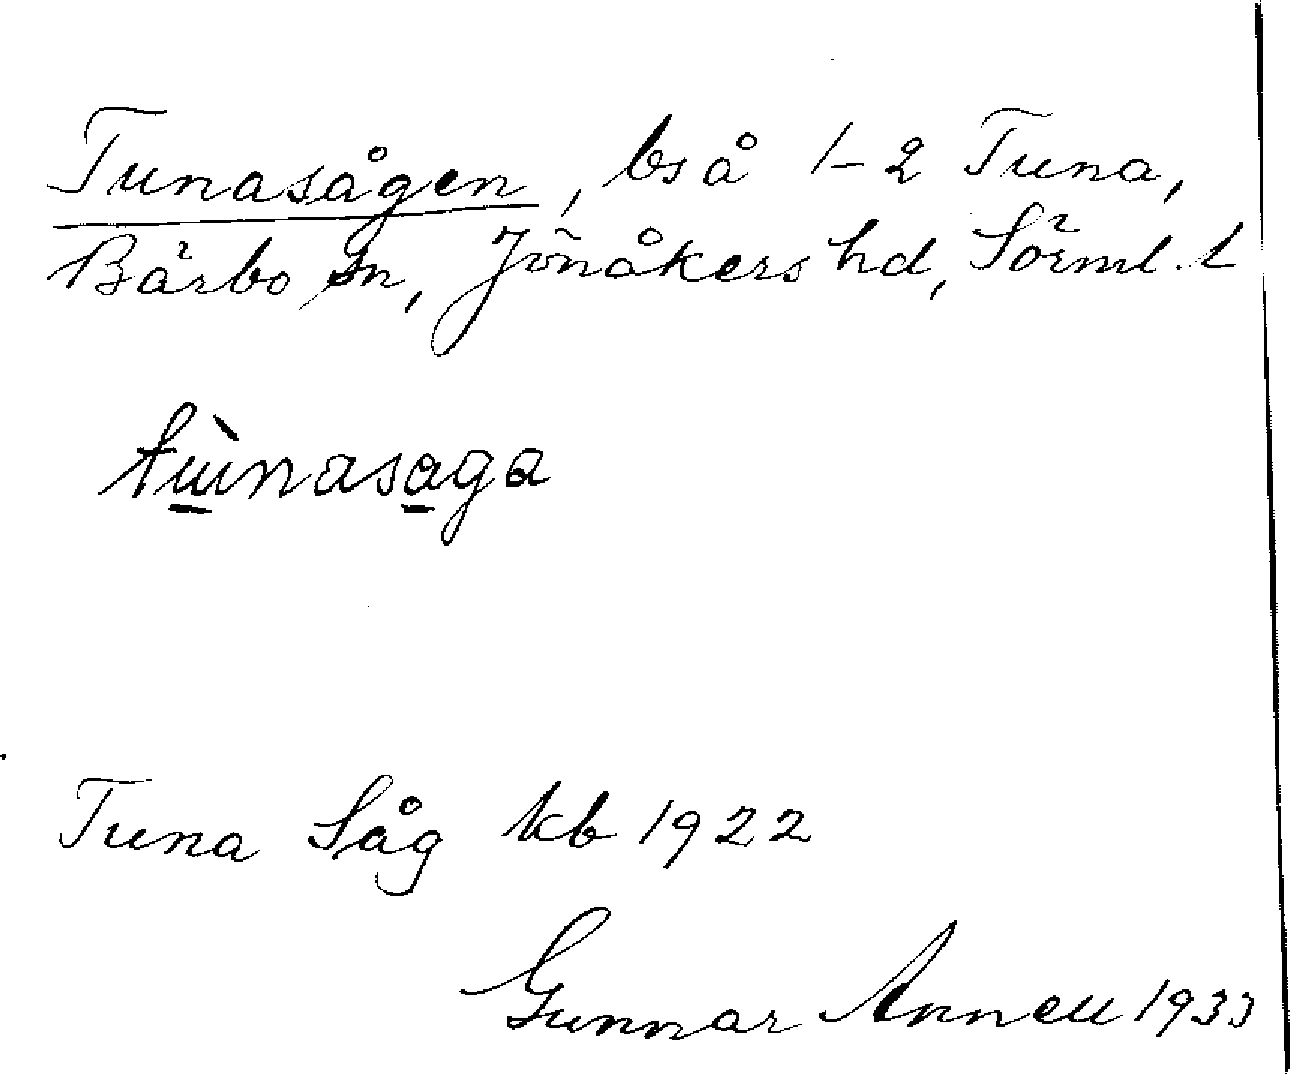 Tunasågen, bs å 1-2 Tuna,
Bärbo sn, Jönåkers hd, Sörml. l
tùnasaga
Tuna Såg kb 1922
Gunnar Annell 1933